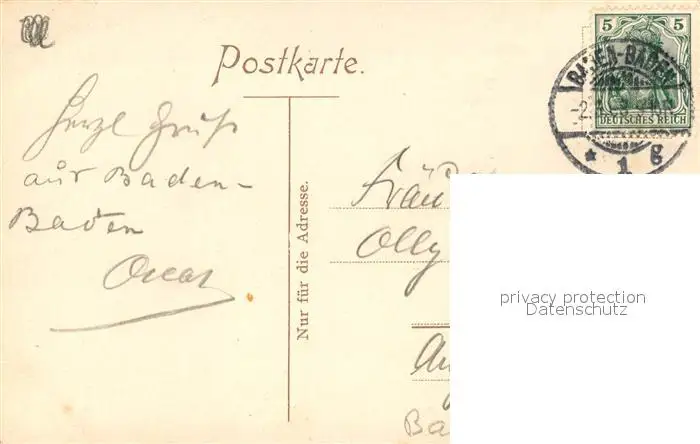 Postkarte.
5 5
DEUTSCHES REICH
BADEN-BADEN
* 1 g
Herzl Gruß
aus Baden-
Baden
Oscar
Nur für die Adresse.
Olly
privacy protection
Datenschutz